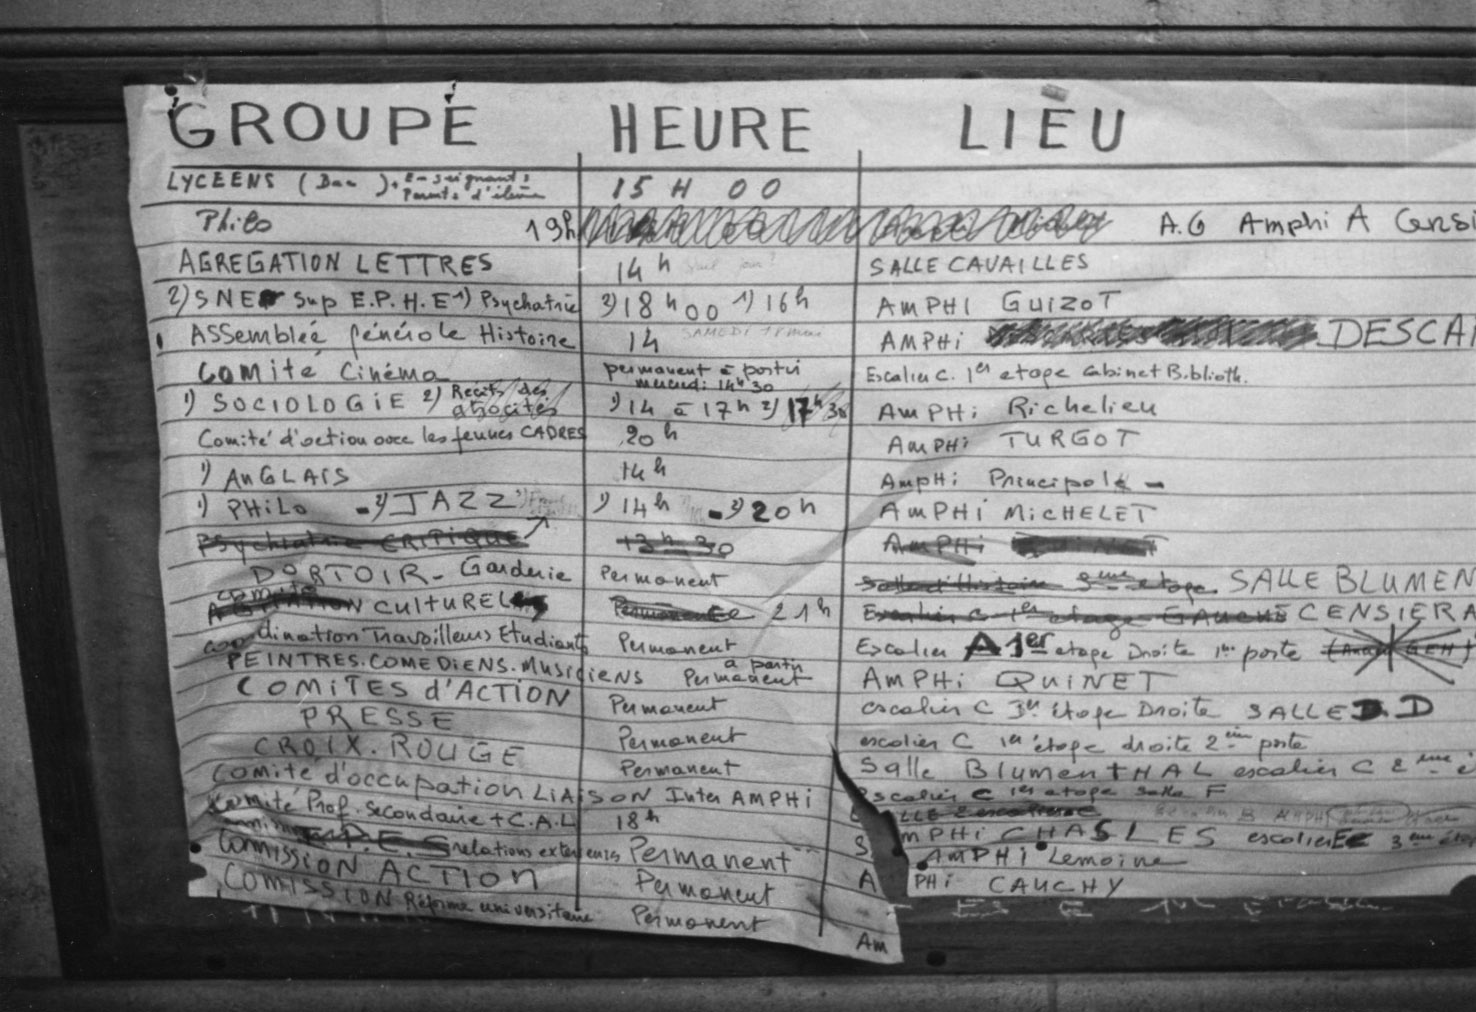 GROUPE HEURE LIEU
LYCEENS ( ) + Enseignants Parents d'élèves 15 H 00
Philo 19h A.G Amphi A Censi
AGREGATION LETTRES 14h SALLE CAVAILLES
2) SNE Sup E.P.H.E 1) Psychatrie 2) 18h00 1) 16h AMPHI GUIZOT
Assemblée générale Histoire 14 SAMEDI 18 mai AMPHI DESCA
Comité Cinéma permanent à partir mercredi 14h30 Escalier C. 1er etage Cabinet Biblioth.
1) SOCIOLOGIE 2) Recits des atrocités 1) 14 à 17h 2) 17h 30 AMPHI Richelieu
Comité d'action avec les jeunes CADRES 20h AMPHI TURGOT
1) ANGLAIS 14h AMPHI Principal
1) PHILO - 2) JAZZ 1) 14h - 2) 20h AMPHI MICHELET
Psychiatrie CRITIQUE 13h 30 AMPHI QUINET
DORTOIR - Garderie Permanent Salle d'Histoire 3eme etage SALLE BLUMEN
Comité AGITATION CULTUREL Permanence 21h Escalier C 1er etage GAUCHE CENSIER A
coordination Travailleurs Etudiants Permanent Escalier A 1er etage Droite 1ere porte
PEINTRES. COMEDIENS. MUSICIENS à partir Permanent AMPHI QUINET
COMITES d'ACTION Permanent escalier C 3e étage Droite SALLE D D
PRESSE Permanent escalier C 1er étage droite 2eme porte
CROIX. ROUGE Permanent Salle BLUMENTHAL escalier C 2eme é
Comité d'occupation LIAISON Inter AMPHI Escalier C 1er etage Salle F
Comité Prof. Secondaire + C.A.L 18h
relations exterieures Permanent AMPHI CHASLES escalier E 3eme éta
COMMISSION ACTION Permanent AMPHI Lemoine
COMISSION Réforme universitaire Permanent A PHI CAUCHY
Am